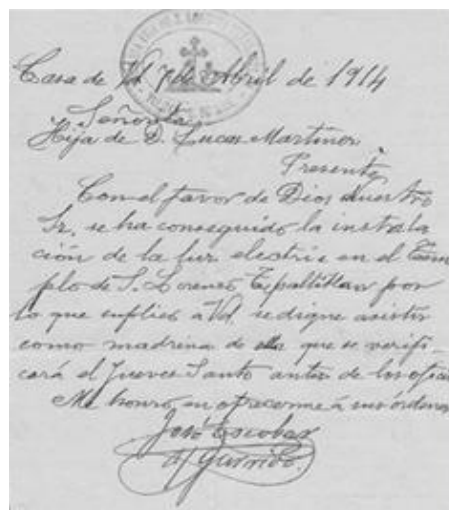 Casa de Vd. 7 de Abril de 1914
Señorita
Hija de D. Lucas Martinez
Presente
Con el favor de Dios Nuestro
Sr. se ha conseguido la instala
ción de la luz electric en el Tem
plo de S. Lorenzo Tepaltitlan por
lo que suplico á Vd. se digne asistir
como madrina de ella que se verifi-
cará el Jueves Santo antes de los ofici
Me honro en ofrecerme á sus órdenes
José Escobar